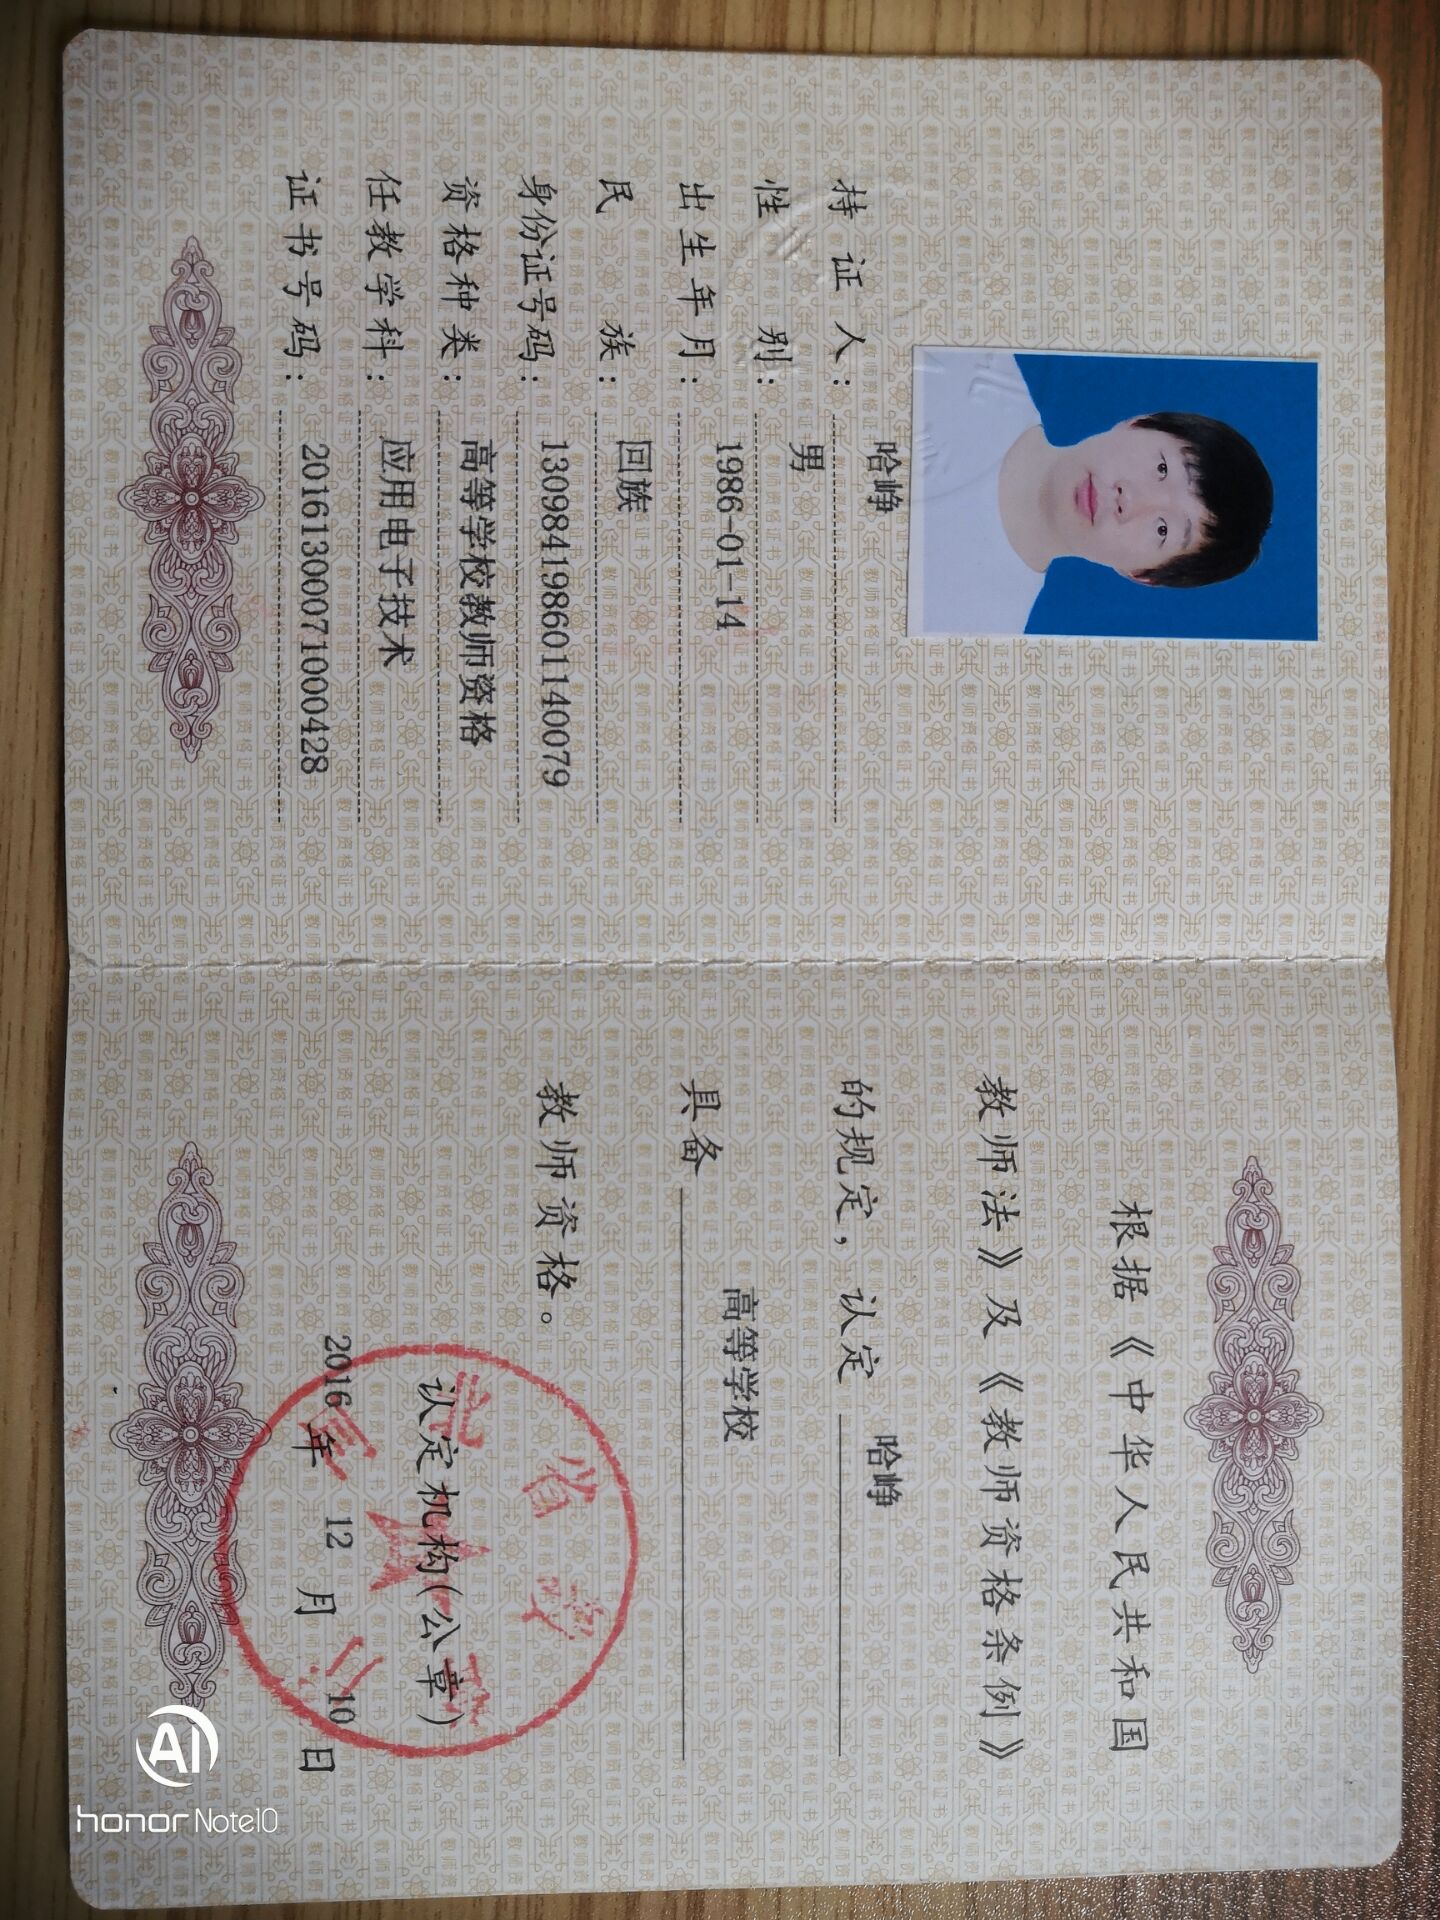 持证人：哈峥
性别：男
出生年月：1986-01-14
民族：回族
身份证号码：130984198601140079
资格种类：高等学校教师资格
任教学科：应用电子技术
证书号码：20161300071000428
根据《中华人民共和国
教师法》及《教师资格条例》
的规定，认定 哈峥
具备 高等学校
教师资格。
认定机构(公章)
2016年 12 月 10 日
AI
honor Note10